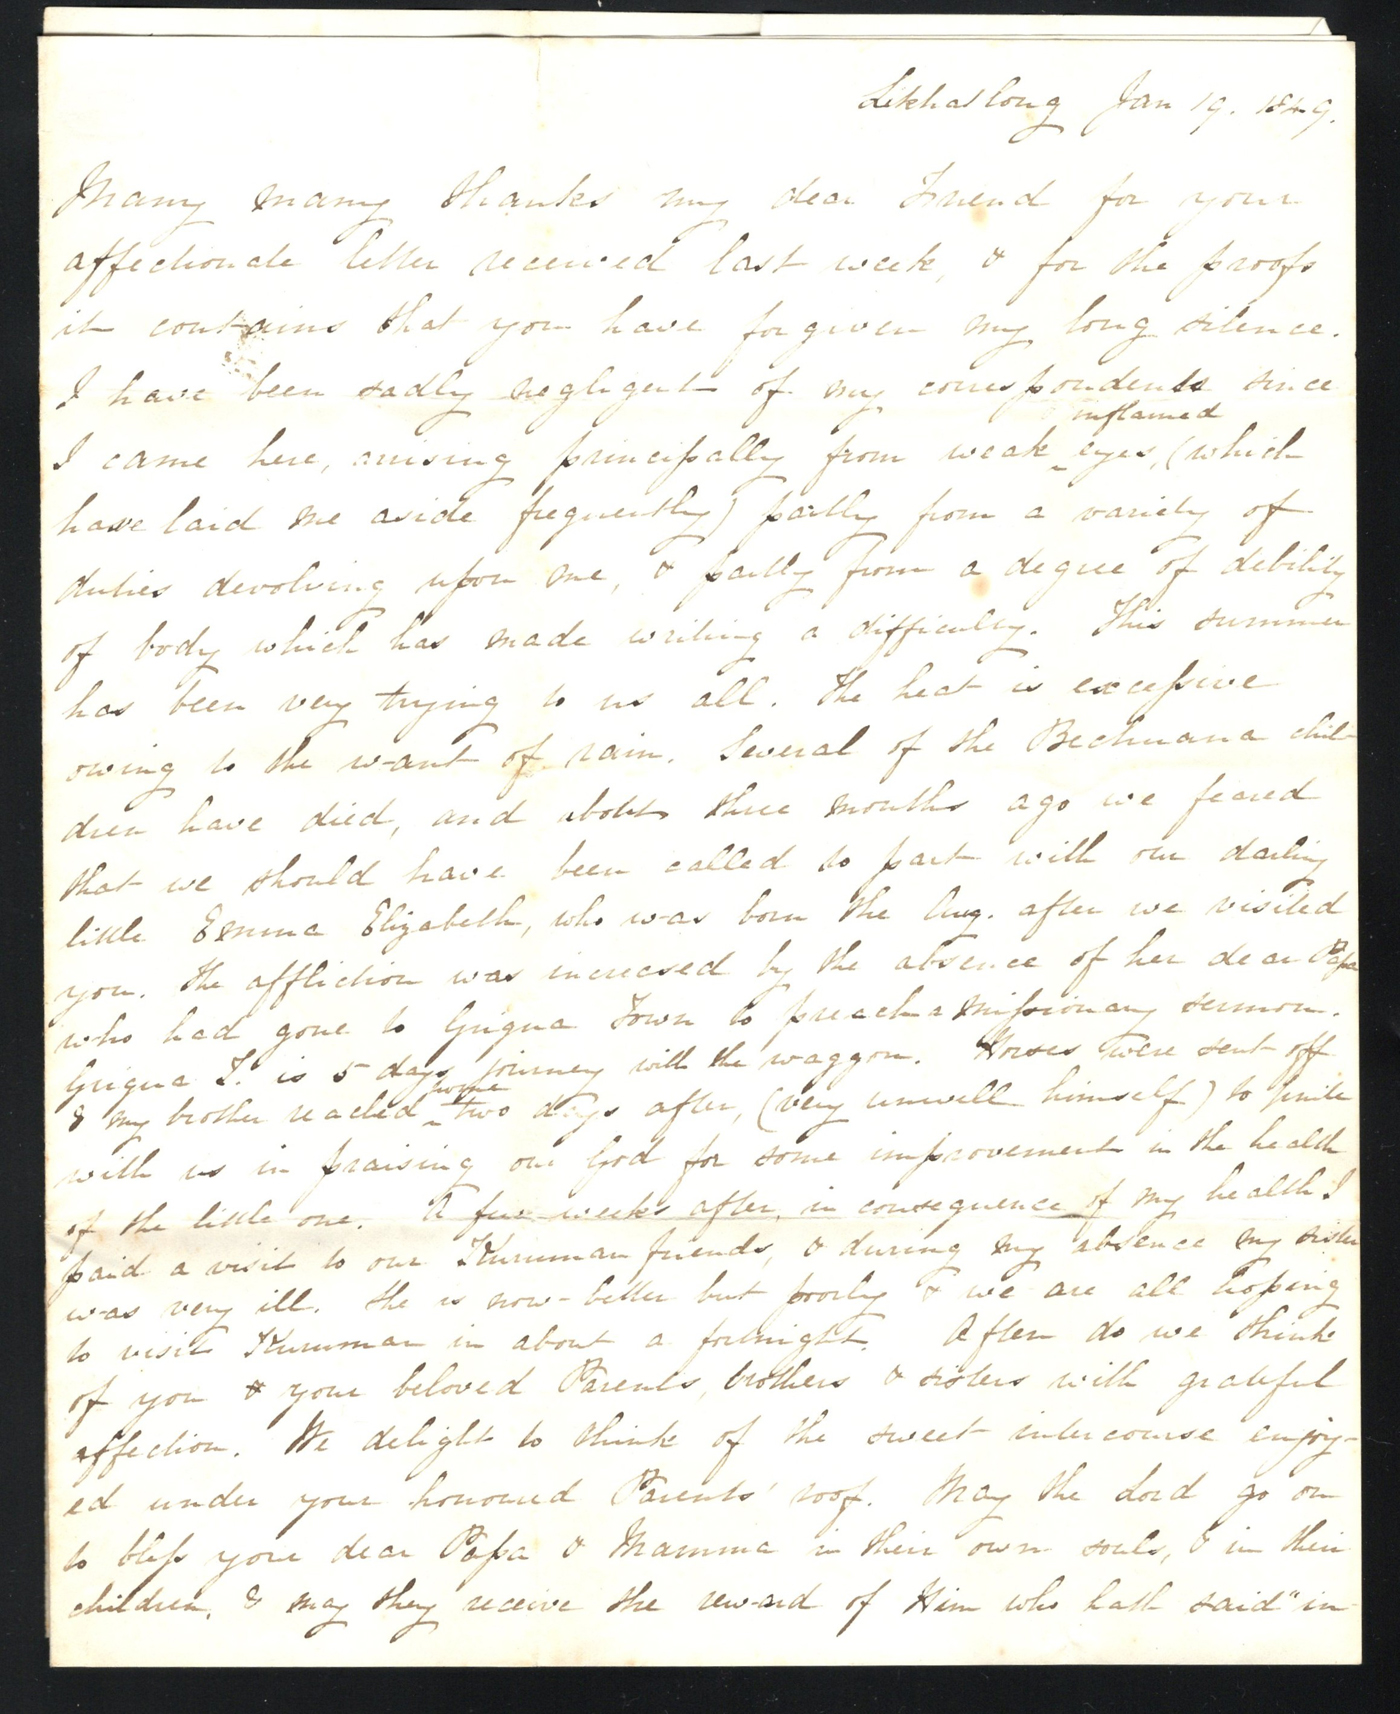 Likhatlong Jan 19. 1849.
Many many thanks my dear Friend for your
affectionate letter received last week, & for the proofs
it contains that you have forgiven my long silence.
I have been sadly negligent of my correspondents since
inflamed
I came here, arising principally from weak ‸ eyes, (which
have laid me aside frequently) partly from a variety of
duties devolving upon me, & partly from a degree of debility
of body which has made writing a difficulty. This summer
has been very trying to us all. The heat is excessive
owing to the want of rain. Several of the Bechuana chil-
dren have died, and about three months ago we feared
that we should have been called to part with our darling
little Emma Elizabeth, who was born the Aug. after we visited
you. The affliction was increased by the absence of her dear Papa
who had gone to Griqua Town to preach a missionary sermon.
Griqua T. is 5 days journey with the waggon. Horses were sent off
home
& my brother reached ‸ two days after, (very unwell himself) to unite
with us in praising our God for some improvement in the health
of the little one. A few weeks after, in consequence of my health I
paid a visit to our Kuruman friends, & during my absence my sister
was very ill. She is now better but poorly & we are all hoping
to visit Kuruman in about a fortnight. Often do we think
of you & your beloved Parents, brothers & sisters with grateful
affection. We delight to think of the sweet intercourse enjoy-
ed under your honoured Parents' roof. May the Lord go on
to bless your dear Papa & Mamma in their own souls, & in their
children, & may they receive the reward of Him who hath said "in